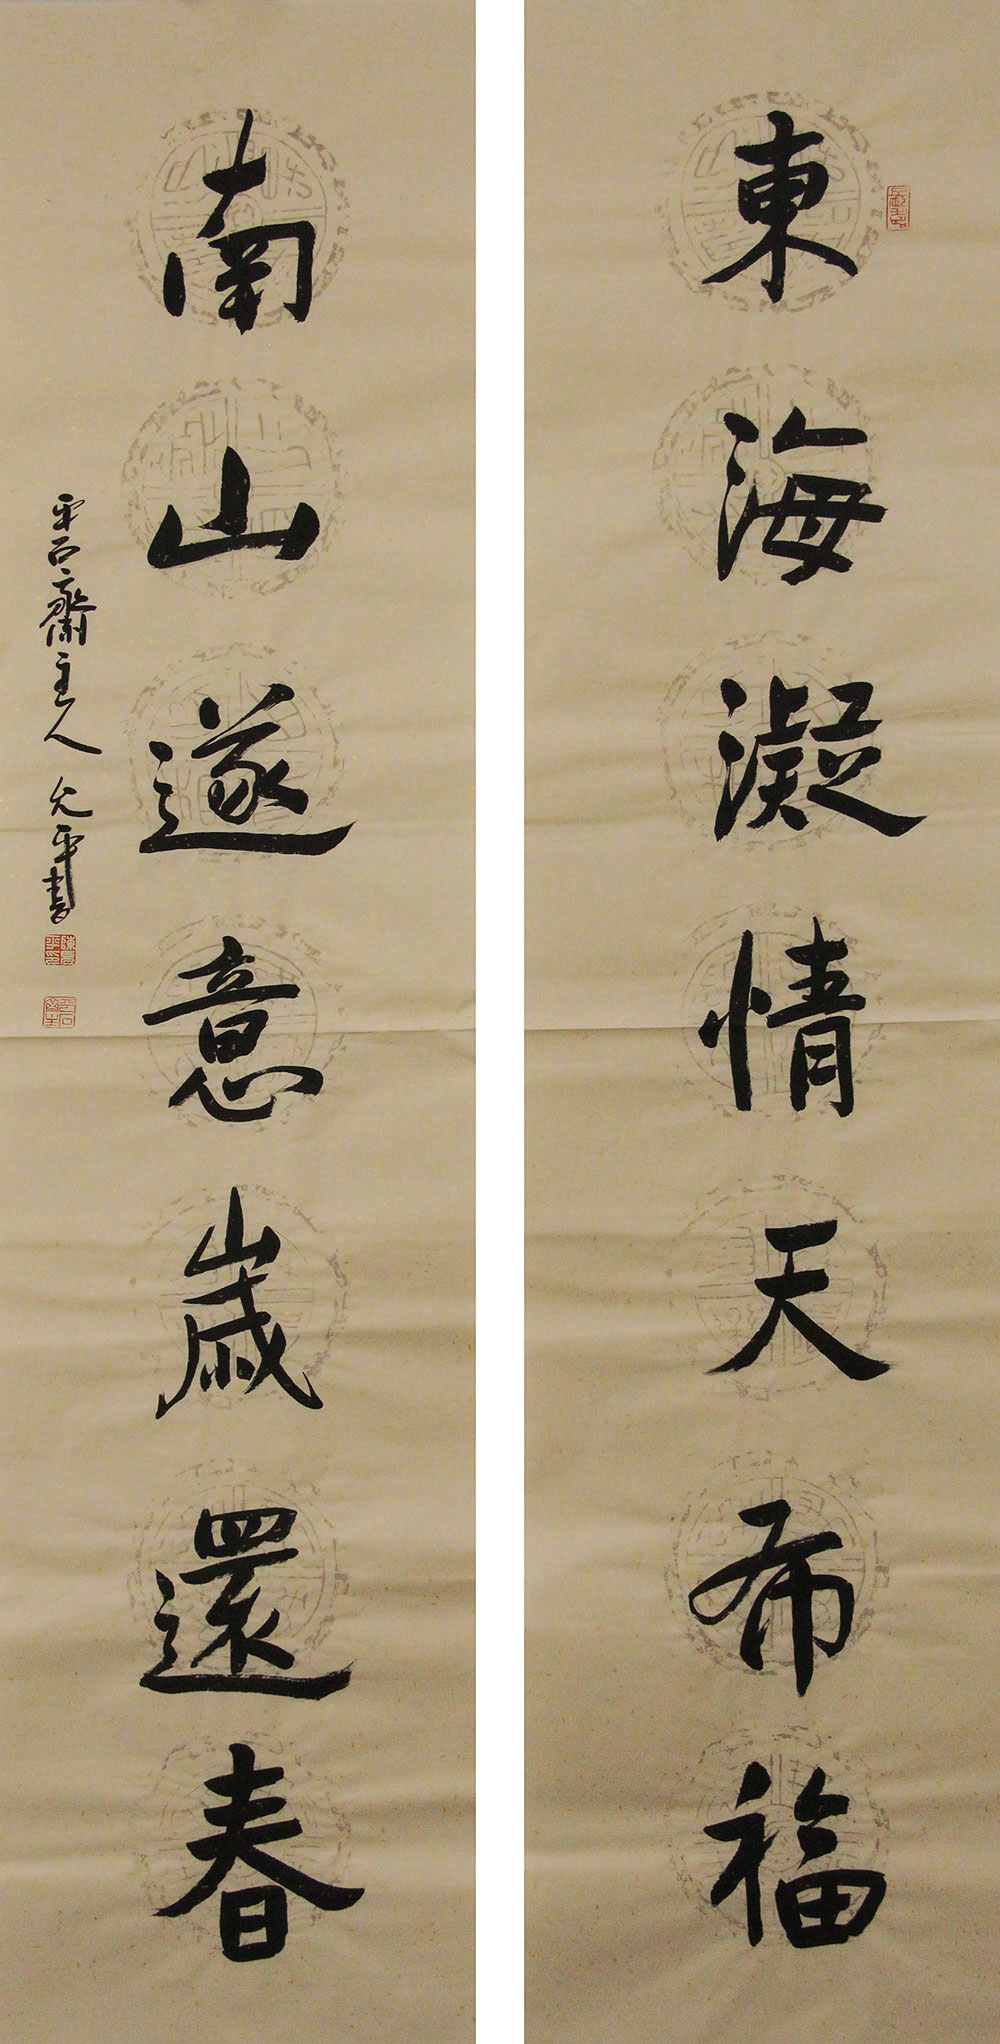 東海凝情天布福
南山遂意歲還春
平石齋主人 允平書